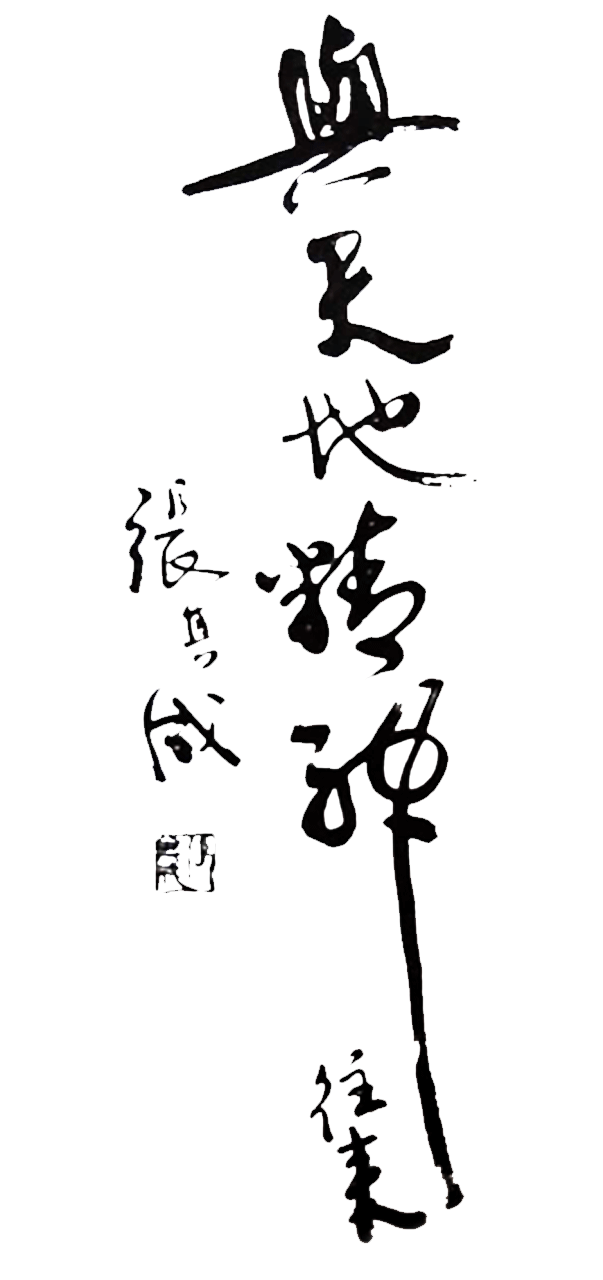 與天地精神往来
張其成